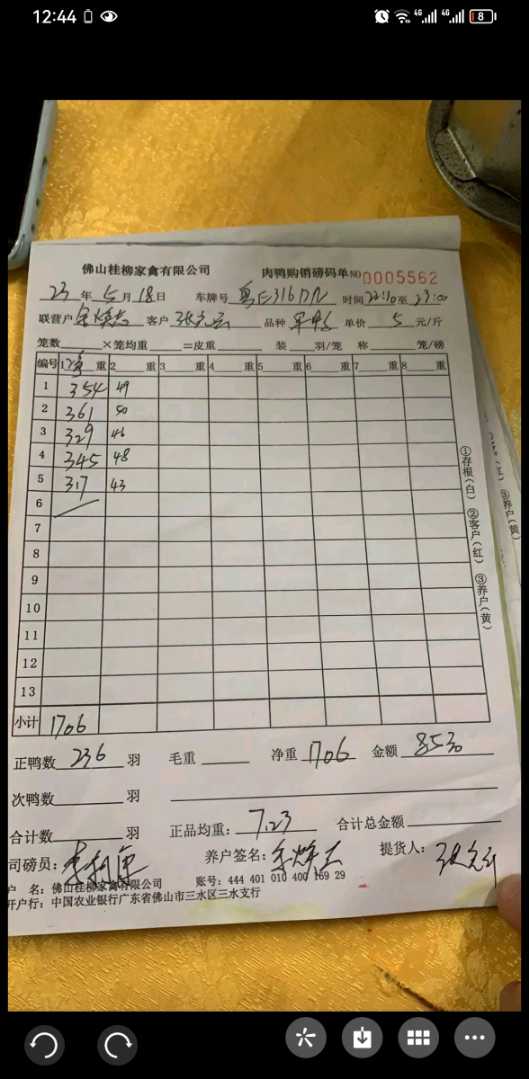 12:44 4G 4G 8
佛山桂柳家禽有限公司 肉鸭购销磅码单 NO 0005562
23年5月18日 车牌号 时间22:10至23:00
联营户 客户 品种 单价 5 元/斤
笼数 ×笼均重 =皮重 装 羽/笼 称 笼/磅
编号 1 重 2 重 3 重 4 重 5 重 6 重 7 重 8 重
1 354 49
2 361 50
3 329 46
4 345 48
5 317 43
6
7
8
9
10
11
12
13
小计 1706
正鸭数 236 羽 毛重 净重 1706 金额 8530
次鸭数 羽
合计数 羽 正品均重: 7.23 合计总金额
司磅员: 养户签名: 提货人:
户 名: 佛山桂柳家禽有限公司 账号: 444 401 010 400 169 29
开户行: 中国农业银行广东省佛山市三水区三水支行
①存根(白) ②客户(红) ③养户(黄)
③养户(黄)